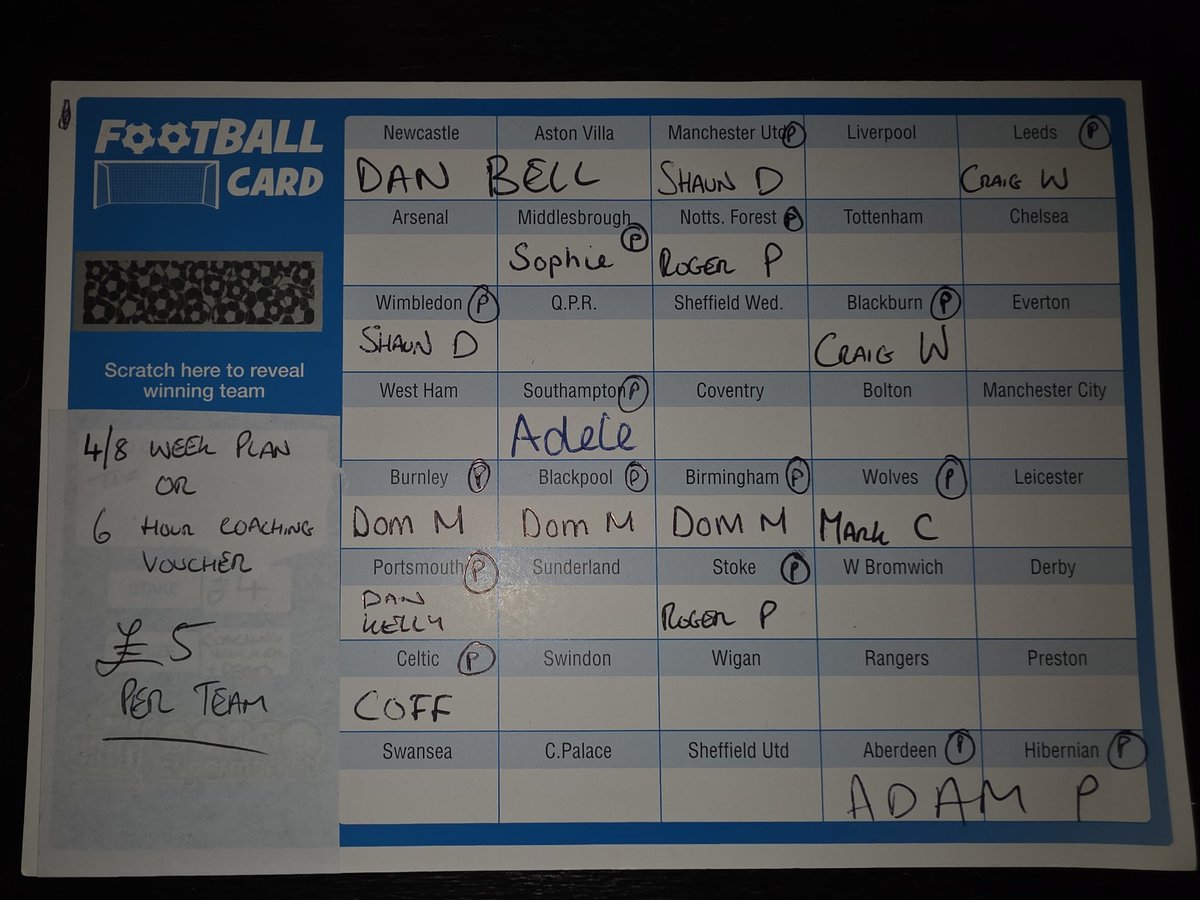 FOOTBALL
CARD
Scratch here to reveal
winning team
4/8 WEEK PLAN
OR
6 HOUR COACHING
VOUCHER
£5
PER TEAM
Newcastle Aston Villa Manchester Utd P Liverpool Leeds P
DAN BELL SHAUN D CRAIG W
Arsenal Middlesbrough P Notts. Forest P Tottenham Chelsea
Sophie ROGER P
Wimbledon P Q.P.R. Sheffield Wed. Blackburn P Everton
SHAUN D CRAIG W
West Ham Southampton P Coventry Bolton Manchester City
Adele
Burnley P Blackpool P Birmingham P Wolves P Leicester
Dom M Dom M Dom M MARK C
Portsmouth P Sunderland Stoke P W Bromwich Derby
DAN
KELLY ROGER P
Celtic P Swindon Wigan Rangers Preston
COFF
Swansea C.Palace Sheffield Utd Aberdeen P Hibernian P
ADAM P